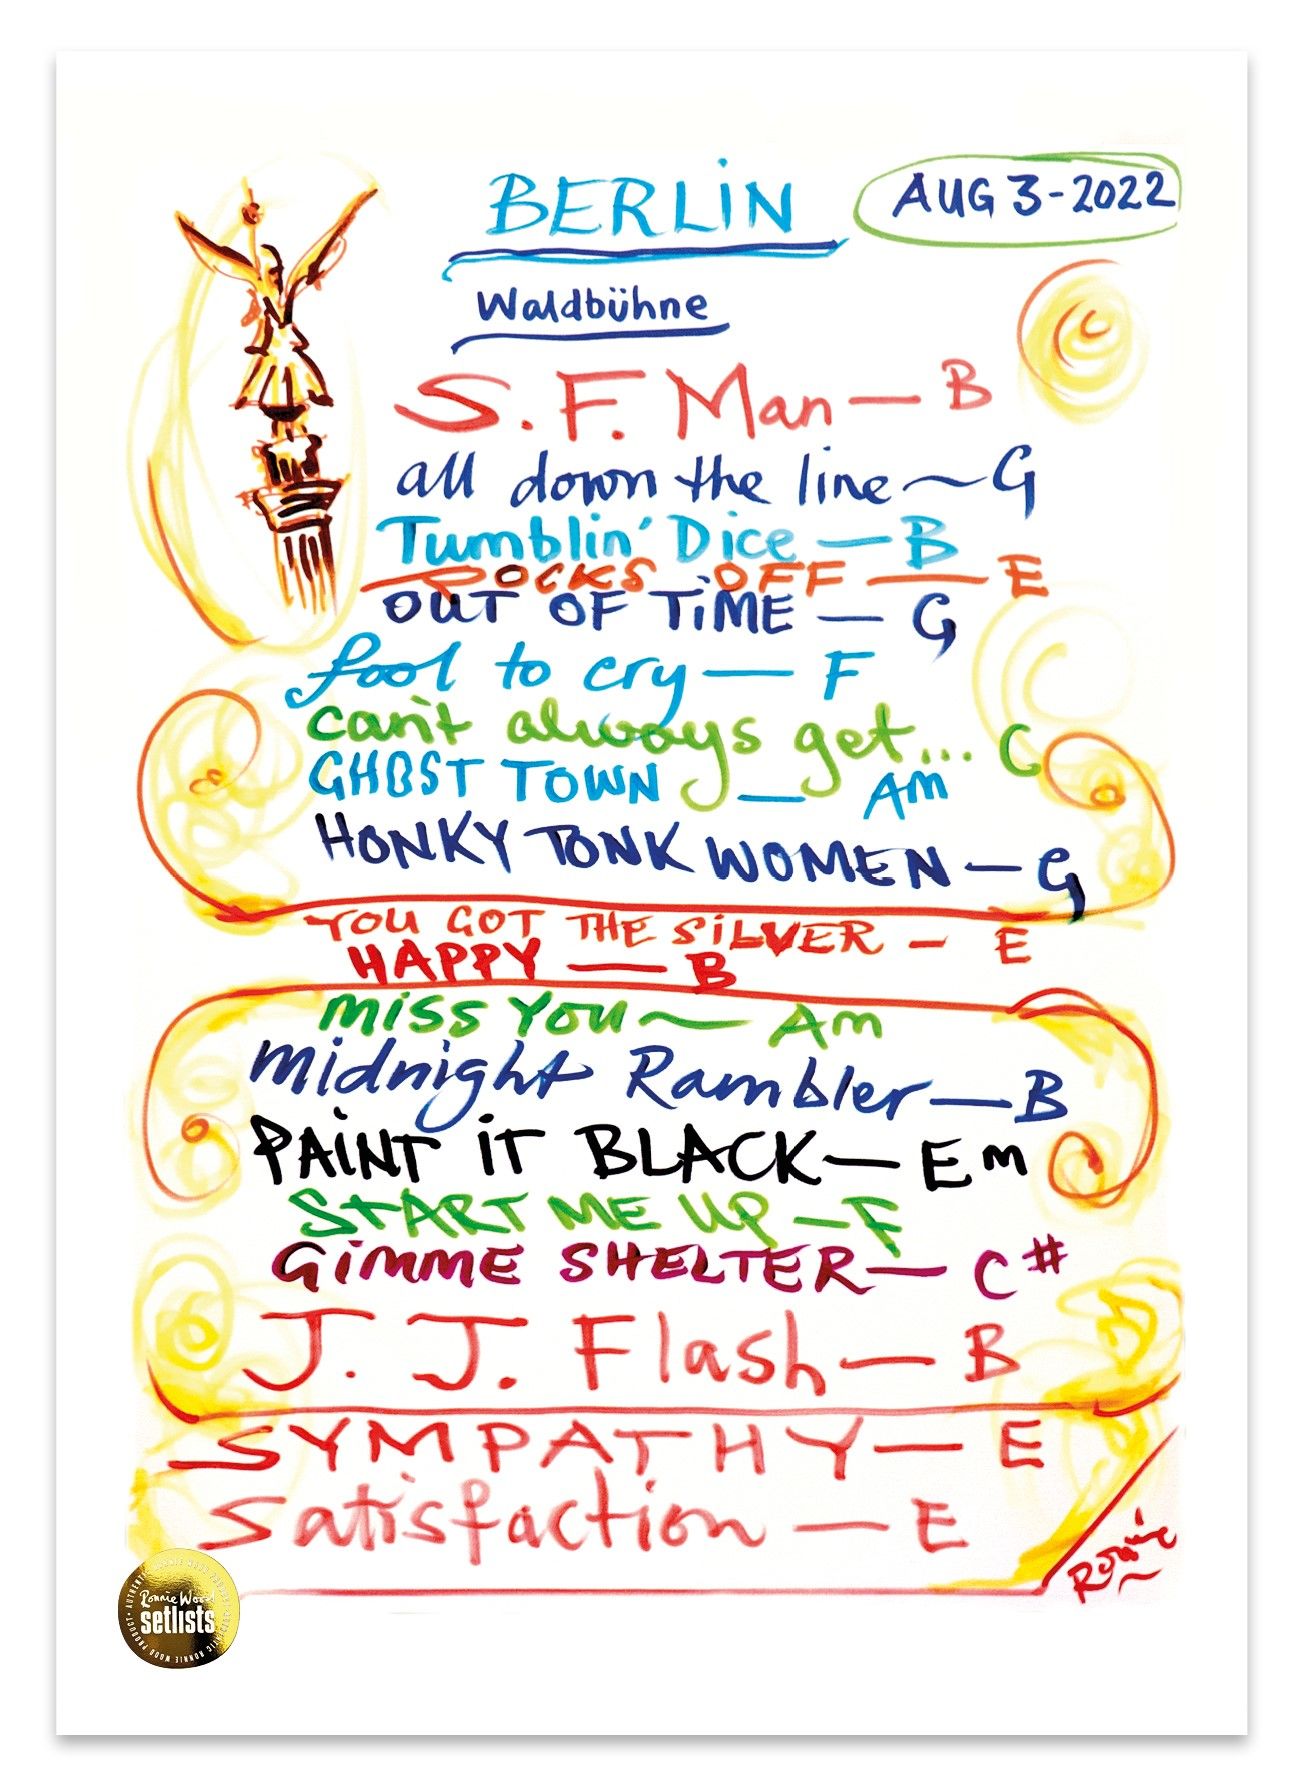 BERLiN
AUG 3-2022
Waldbühne
S.F. Man — B
all down the line ~ G
Tumblin' Dice — B
ROCKS OFF — E
OUT OF TiME — G
fool to cry — F
can't always get... C
GHOST TOWN — Am
HONKY TONK WOMEN — G
YOU GOT THE SiLVER — E
HAPPY — B
Miss You ~ Am
Midnight Rambler — B
PAiNT iT BLACK — Em
START ME UP — F
GiMME SHELTER — C#
J. J. Flash — B
SYMPATHY — E
Satisfaction — E
Ronnie
Ronnie Wood
setlists
AUTHENTIC RONNIE WOOD PRODUCT • AUTHENTIC RONNIE WOOD PRODUCT •